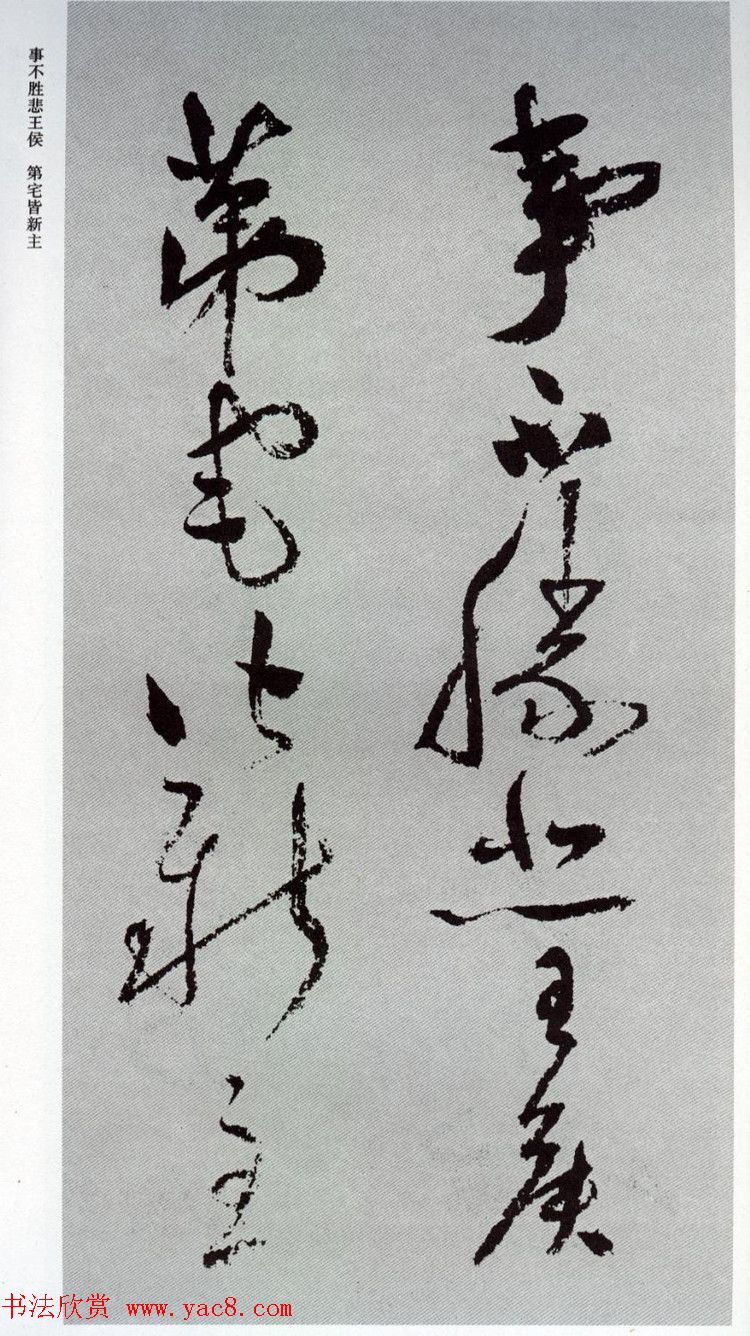 事不勝悲王侯
第宅皆新主
事不胜悲王侯　第宅皆新主
书法欣赏 www.yac8.com